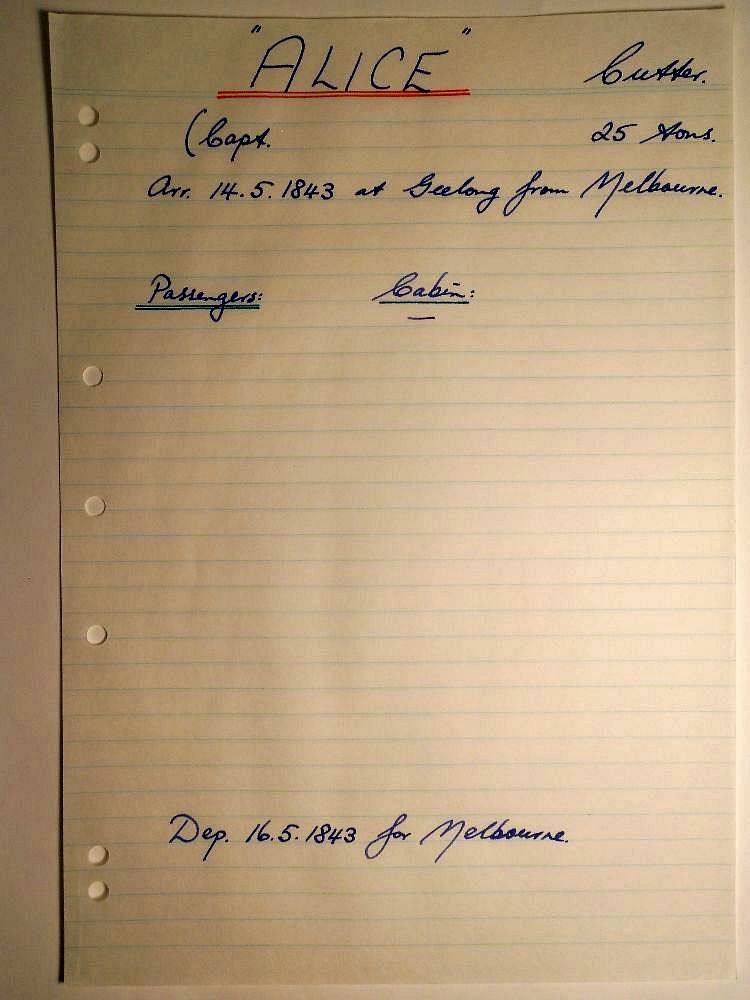 "ALICE" Cutter.
(Capt. 25 tons.
Arr. 14.5.1843 at Geelong from Melbourne.
Passengers: Cabin:
—
Dep. 16.5.1843 for Melbourne.